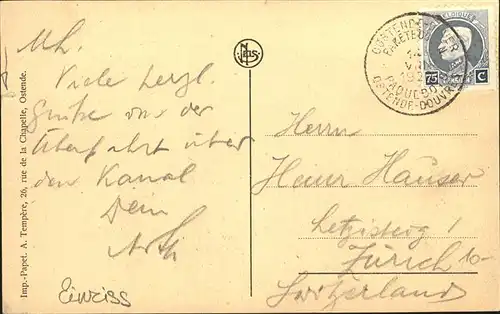 M.h.
Viele herzl.
Grüße von der
Überfahrt über
den Kanal
Dein
Imp.-Papet. A. Tempère, 26, rue de la Chapelle, Ostende.
Einriss
Nels
OOSTENDE-DOVER
PAKETBOOT
PAQUEBOT
OSTENDE-DOUVRES
BELGIQUE
75 C
Herrn
Heinr Hauser
Letzisteig 1
Zürich 10
Switzerland